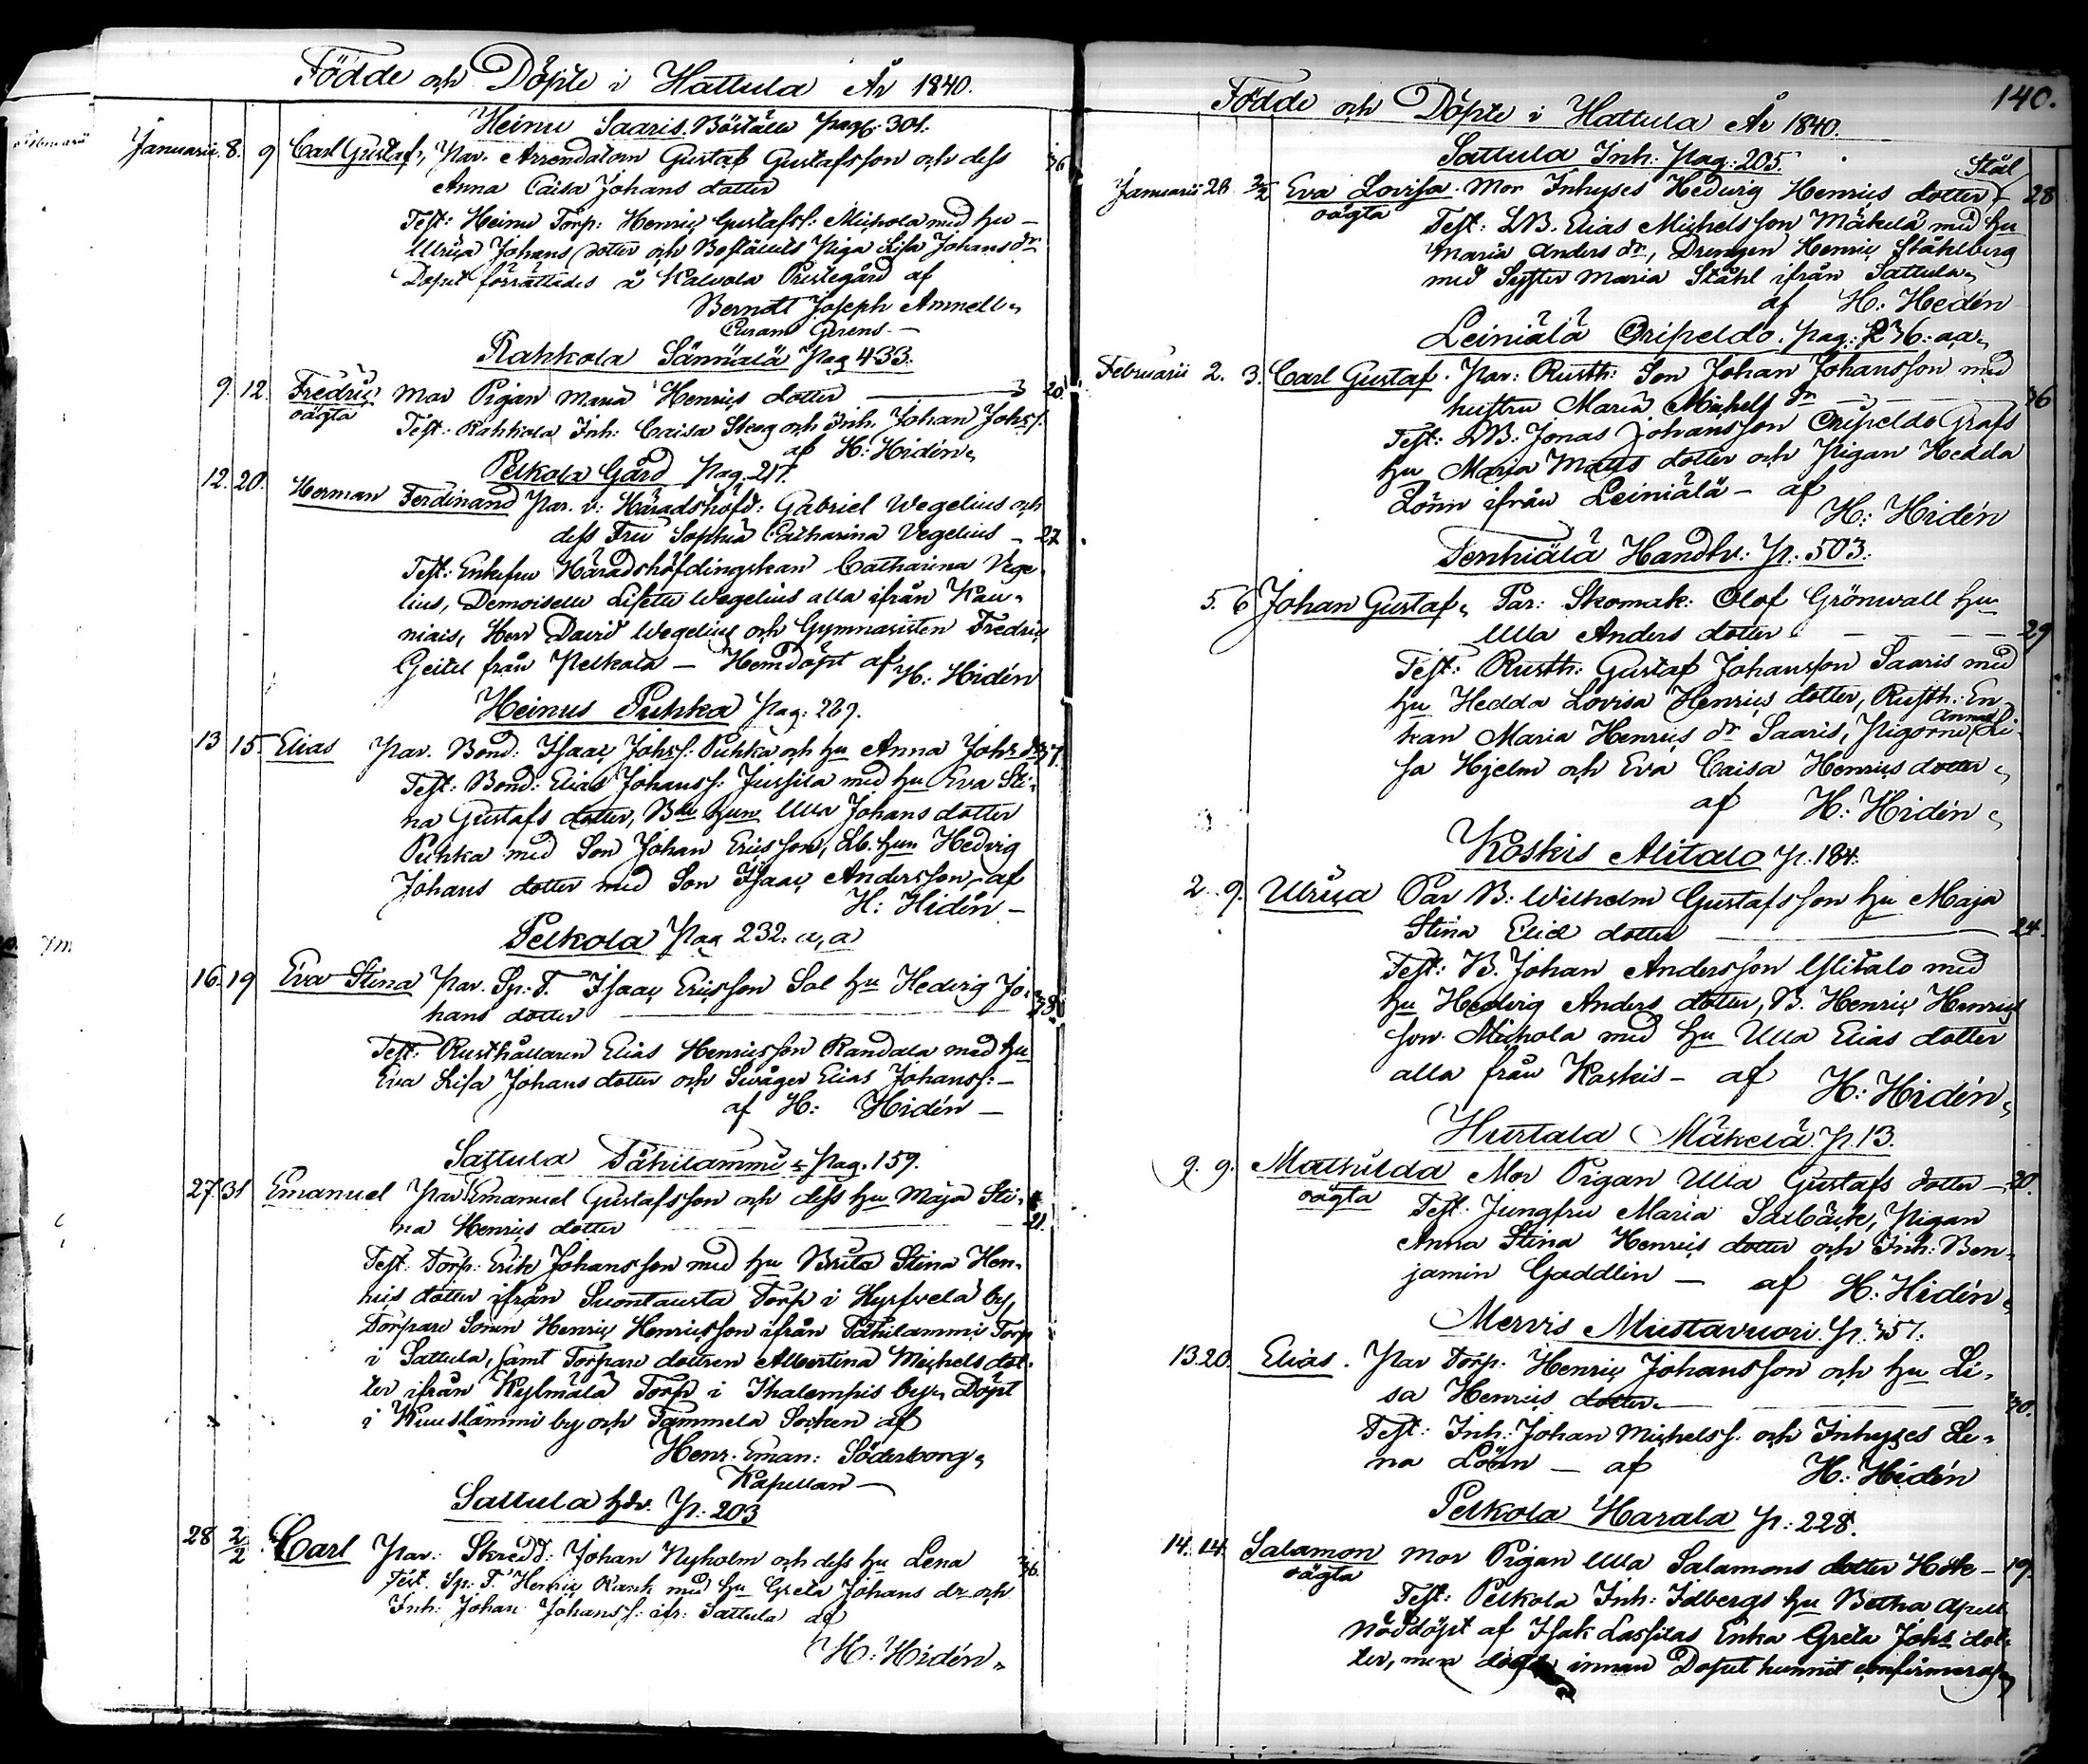 Födde och Döpte i Hattula År 1840.
Heinu Saaris Boställe pag: 301.
Januarii 8. 9 Carl Gustaf, Par. Arrendatorn Gustaf Gustafsson och dess 36
Anna Caisa Johans dotter
Test: Heinu Torp: Henric Gustafss: Mickola med hu
Ulrica Johans dotter och Boställets Piga Lisa Johans dr
Dopet förrättades å Kalvola Prestegård af
Berndt Joseph Amnell
Curam Gerens
Rahkola Sänniälä Pag 433.
9. 12. Fredric Mor Pigan Maria Henrics dotter 20.
oägta Test: Rahkola Inh: Caisa Skog och Inh. Johan Johss.
af H: Hidén
Pelkola Gård Pag. 217.
12. 20. Herman Ferdinand Par. v: Häradshöfd: Gabriel Wegelius och
dess Fru Sophia Catharina Vegelius 27
Test: Enkefru Häradshöfdingskan Catharina Vege
lius, Demoiselle Lisette Wegelius alla ifrån Kau
niais, Herr David Wegelius och Gymnasisten Fredric
Geitel från Pelkola — Hemdöpt af H: Hidén
Heinus Puhka Pag: 289.
13 15. Elias Par. Bond: Isaac Johss: Puhka och hu Anna Johs dr 37.
Test: Bond: Elias Johanss: Jussila med hu Eva Sti
na Gustafs dotter, Bde hun Ulla Johans dotter
Puhka med Son Johan Ericsson, Lb. hun Hedvig
Johans dotter med Son Isaac Andersson, af
H: Hidén
Pelkola Pag 232. a, a
16. 19 Eva Stina Par. Sp: T. Isaac Ericsson Sal hu Hedvig Jo
hans dotter 38.
Test: Rusthållaren Elias Henricsson Randala med hu
Eva Lisa Johans dotter och Swåger Elias Johanss:
af H: Hidén
Sattula Tähilammi Pag. 159.
27. 31 Emanuel Par Emanuel Gustafsson och dess hu Maja Sti
na Henrics dotter 21.
Test: Torp: Erik Johansson med hu Brita Stina Hen
rics dotter ifrån Suontausta Torp i Hyrfvelä by,
Torpare Sonen Henric Henricsson ifrån Tähilammi Torp
i Sattula, samt Torpare dottren Albertina Michels dot
ter ifrån Kylmälä Torp i Ihalempis by, Döpt
i Kuuslammi by och Tammela Socken af
Henr. Eman: Söderborg
Kapellan
Sattula hdr. P: 203
28 2/2 Carl Par: Skredd: Johan Nyholm och dess hu Lena 36.
Test. Sp: T. Henric Rask med hu Greta Johans dr och
Inh: Johan Johanss: ifr: Sattula af
H: Hidén
140.
Födde och Döpte i Hattula År 1840.
Sattula Inh: Pag: 205.
Stål
Januarii 28. 2/2 Eva Lovisa. Mor Inhyses Hedvig Henrics dotter 28
oägta Test: LB. Elias Michelsson Mäkelä med hu
Maria Anders dr, Drengen Henric Ståhlberg
med Syster Maria Ståhl ifrån Sattula
af H: Hedén
Leiniälä Oripeldo. Pag: 236: aa
Februarii 2. 3. Carl Gustaf. Par: Rusth: Son Johan Johansson med
hustru Maria Michels dr 36
Test: LB: Jonas Johansson Oripeldo Grafs
hu Maria Matts dotter och Pigan Hedda
Lönn ifrån Leiniälä — af
H: Hidén
Tenhiälä Handtv: P. 503.
5. 6 Johan Gustaf, Par: Skomak: Olof Grönwall hu
Ulla Anders dotter 29
Test: Rusth: Gustaf Johansson Saaris med
hu Hedda Lovisa Henrics dotter, Rusth: En
kan Maria Henrics dr Saaris, Pigorna Anna Li
sa Hjelm och Eva Caisa Henrics dotter
af H: Hidén
Koskis Alitalo P. 184.
2. 9. Ulrica Par B: Wilhelm Gustafsson hu Maja
Stina Elias dotter 24.
Test: B. Johan Andersson Ylitalo med
hu Hedvig Anders dotter, B. Henric Henrics
son Mickola med hu Ulla Elias dotter
alla från Koskis — af H: Hidén
Hurtala Mäkelä P. 13.
9. 9. Mathilda Mor Pigan Ulla Gustafs dotter 20.
oägta Test: Jungfru Maria Saxbäck, Pigan
Anna Stina Henrics dotter och Inh: Ben
jamin Gaddlin — af H: Hidén
Mervis Mustavuori P. 357.
13. 20. Elias. Par Torp: Henric Johansson och hu Li
sa Henrics dotter 30.
Test: Inh: Johan Michelss. och Inhyses Le
na Lönn — af H: Hidén
Pelkola Harala P: 228.
14. 14. Salamon Mor Pigan Ulla Salamons dotter Hök 19.
oägta Test: Pelkola Inh: Idbergs hu Betha Apell
Nöddöpt af Isak Lassilas Enka Greta Johs dot
ter, men innan Dopet hunnit confirmeras